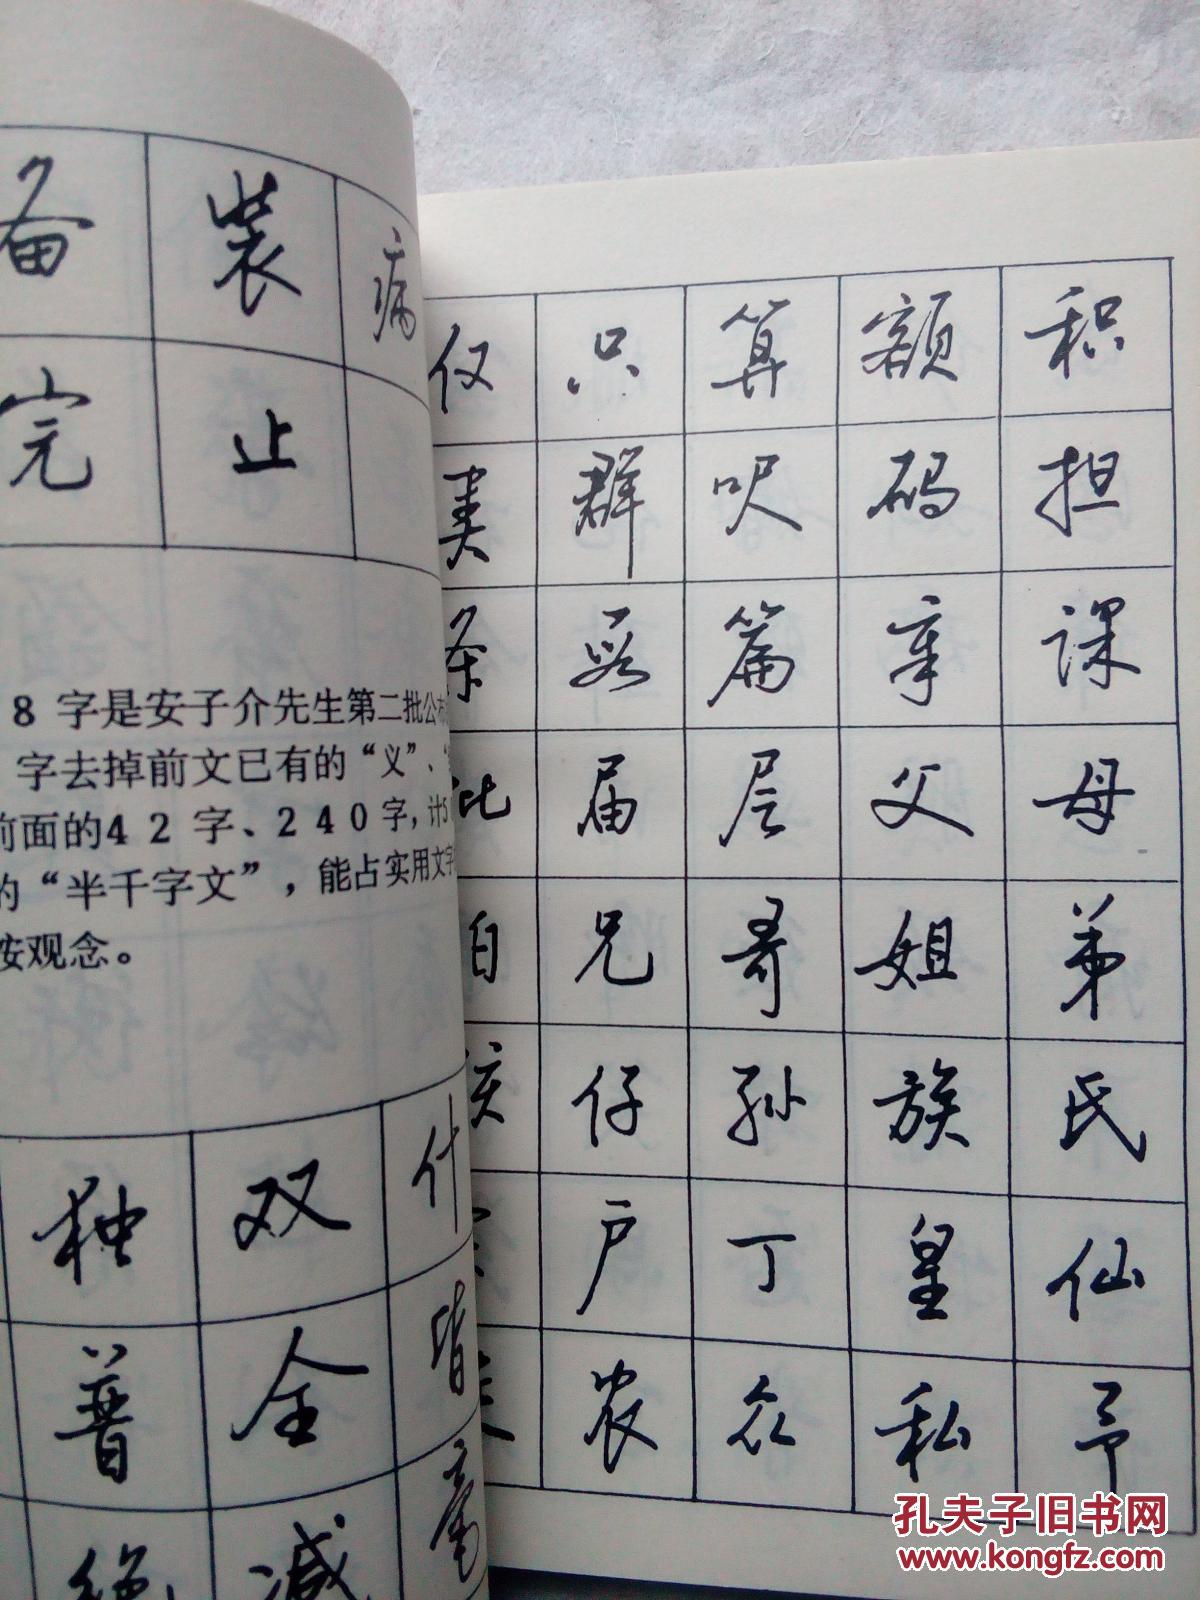 备 装 病
完 止
8字是安子介先生第二批公布
字去掉前文已有的“义”、
前面的42字、240字,计5
的“半千字文”，能占实用文字
按观念。
独 双 什
普 全 皆
绝 减 毫
仅 只 算 额 积
类 群 呎 码 担
条 段 篇 章 课
批 届 层 父 母
伯 兄 哥 姐 弟
孩 仔 孙 族 氏
户 丁 皇 仙
农 众 私 予
孔夫子旧书网
www.kongfz.com